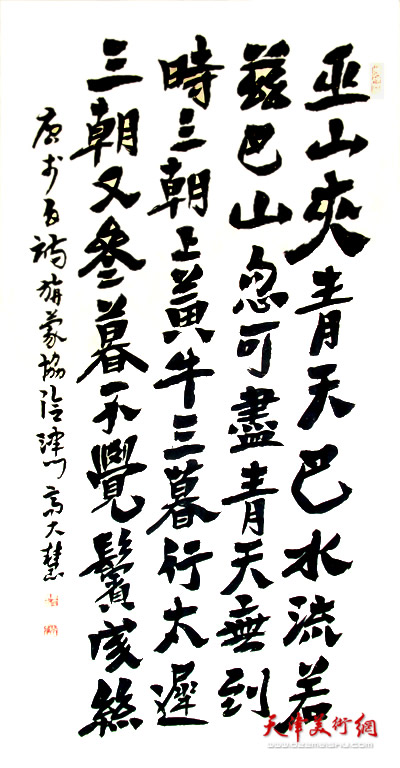 巫山夾青天巴水流若
茲巴山忽可盡青天無到
時三朝上黃牛三暮行太遲
三朝又叁暮不覺鬢成絲
唐李白詩旃蒙協洽津门高大
天津美術網